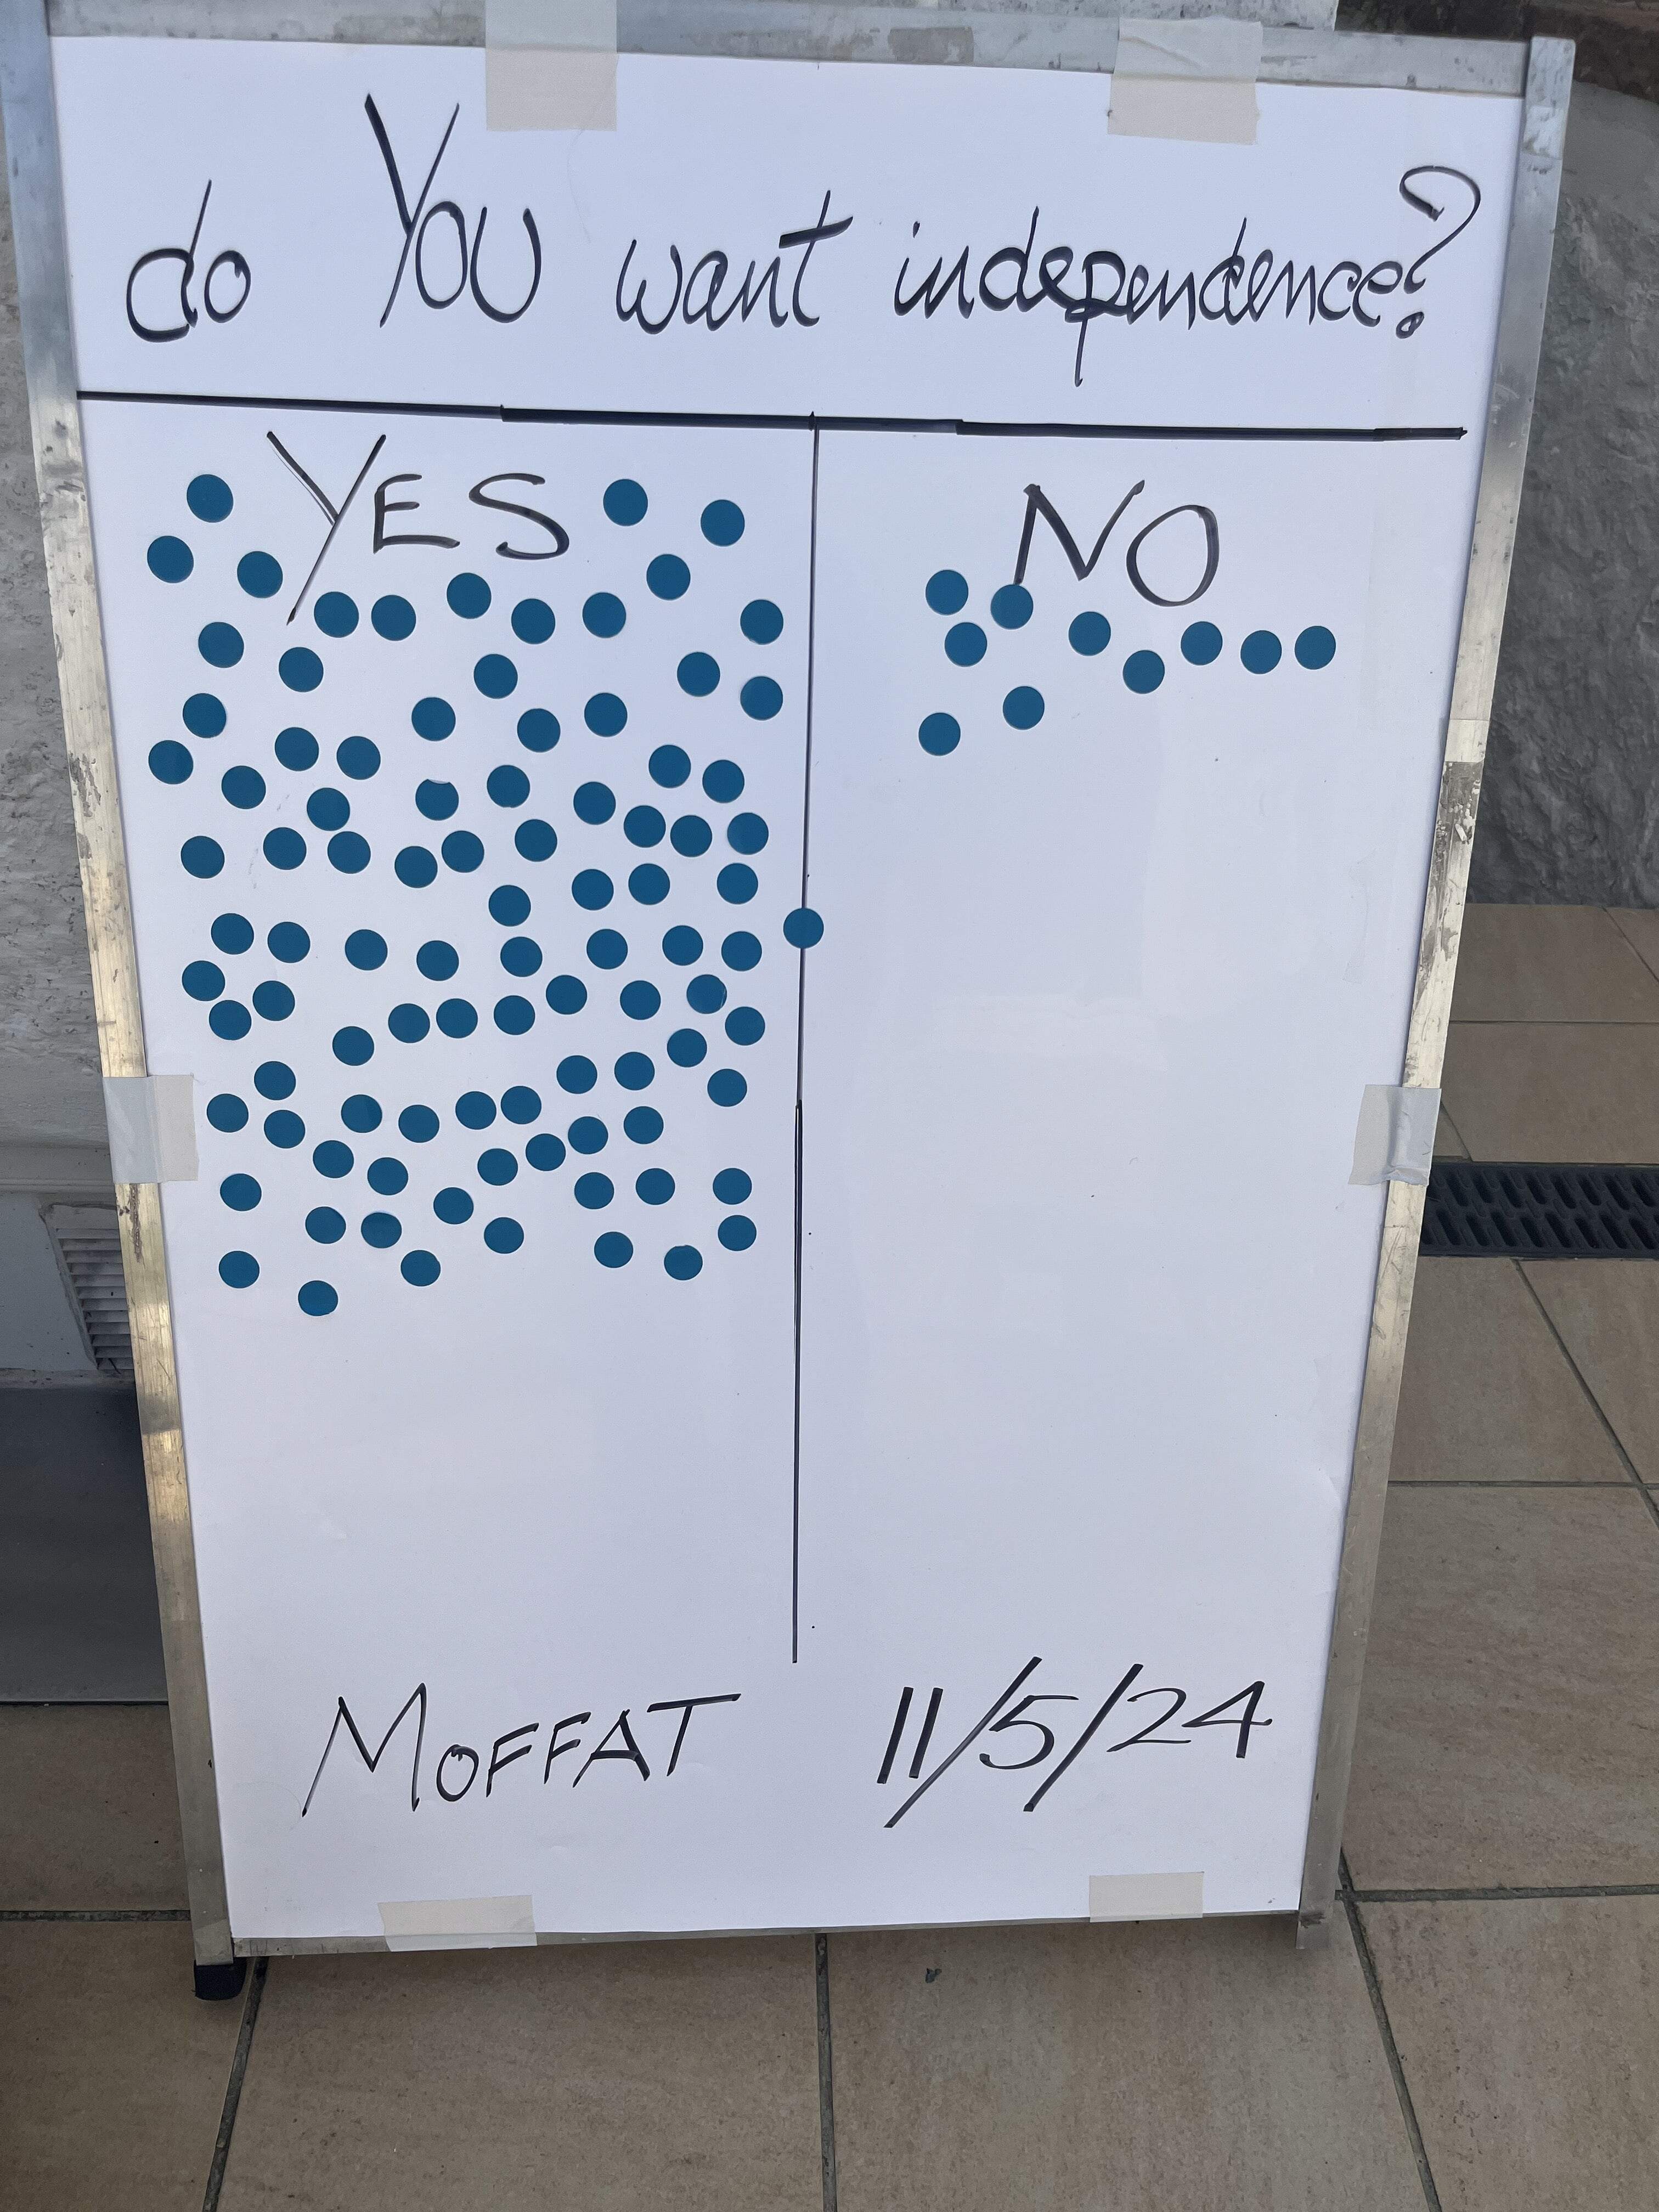 do YOU want independence?
YES NO
MOFFAT 11/5/24